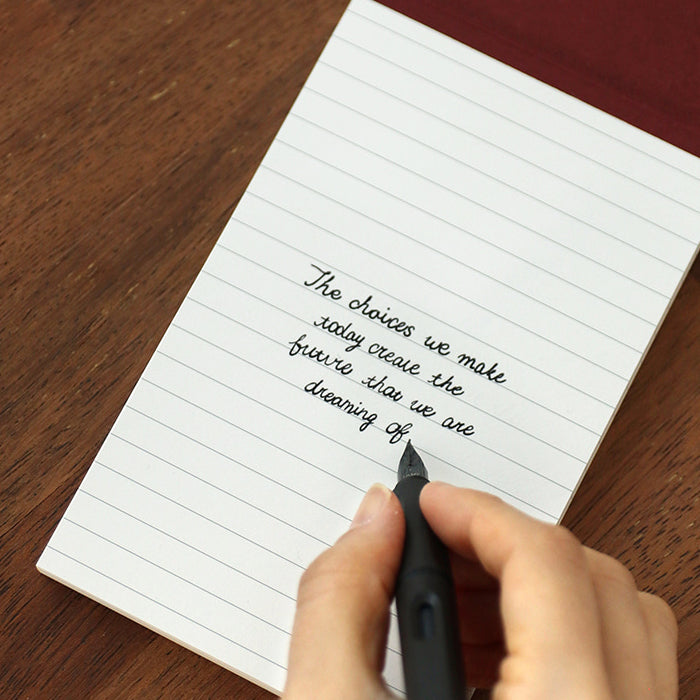 The choices we make
today create the
future that we are
dreaming of